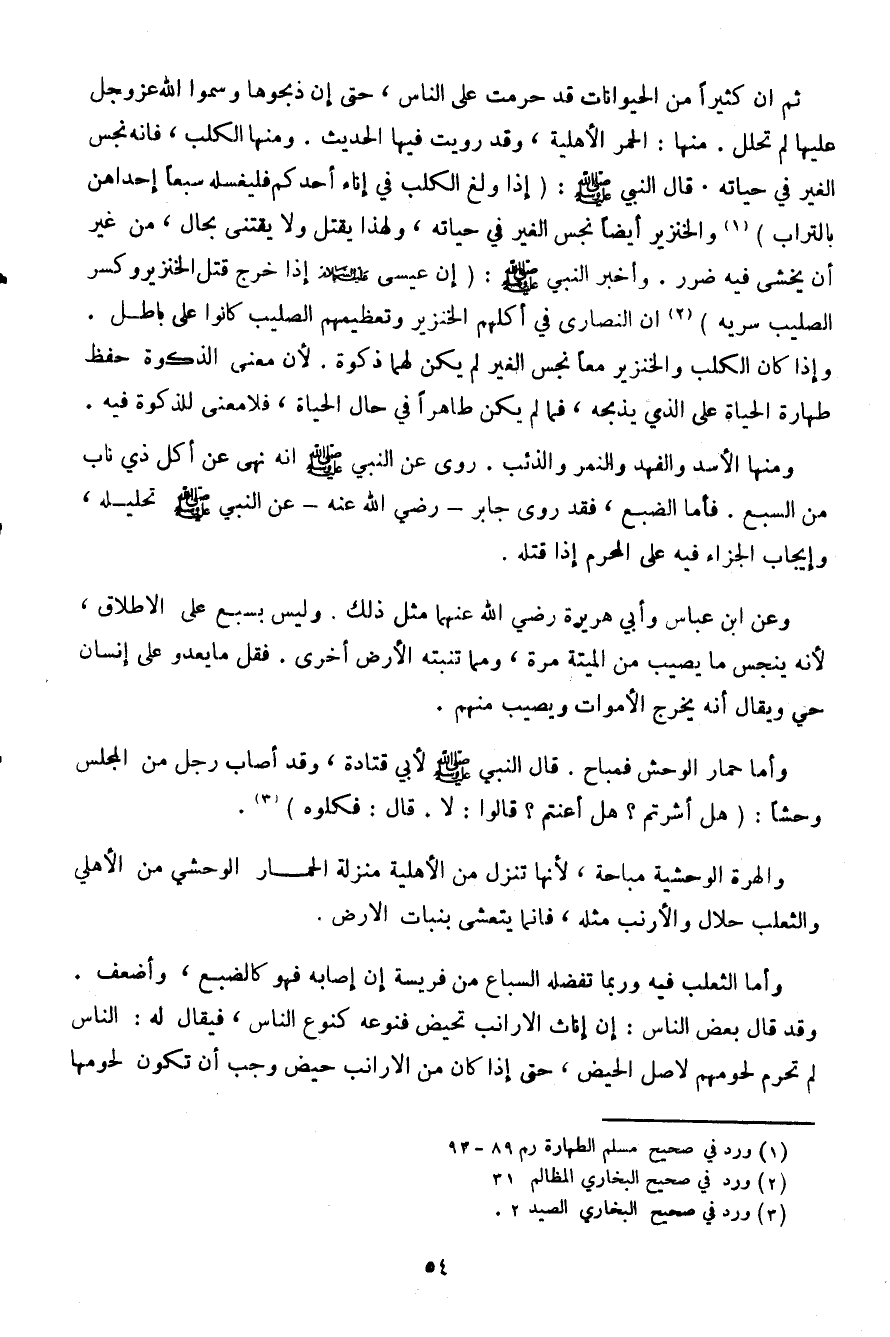 ثم ان كثيراً من الحيوانات قد حرمت على الناس ، حتى إن ذبحوها وسموا الله عزوجل
عليها لم تحلل . منها : الحمر الأهلية ، وقد رويت فيها الحديث . ومنها الكلب ، فانه نجس
الغير في حياته . قال النبي ﷺ : ( إذا ولغ الكلب في إناء أحدكم فليغسله سبعاً إحداهن
بالتراب ) (١) والخنزير أيضاً نجس الغير في حياته ، ولهذا يقتل ولا يقتنى بحال ، من غير
أن يخشى فيه ضرر . وأخبر النبي ﷺ : ( إن عيسى عليه السلام إذا خرج قتل الخنزير وكسر
الصليب سريه ) (٢) ان النصارى في أكلهم الخنزير وتعظيمهم الصليب كانوا على باطل .
وإذا كان الكلب والخنزير معاً نجس الغير لم يكن لهما ذكوة . لأن معنى الذكوة حفظ
طهارة الحياة على الذي يذبحه ، فما لم يكن طاهراً في حال الحياة ، فلا معنى للذكوة فيه .
ومنها الأسد والفهد والنمر والذئب . روى عن النبي ﷺ انه نهى عن أكل ذي ناب
من السبع . فأما الضبع ، فقد روى جابر – رضي الله عنه – عن النبي ﷺ تحليله ،
وإيجاب الجزاء فيه على المحرم إذا قتله .
وعن ابن عباس وأبي هريرة رضي الله عنهما مثل ذلك . وليس بسبع على الاطلاق ،
لأنه ينجس ما يصيب من الميتة مرة ، ومما تنبته الأرض أخرى . فقل مايعدو على إنسان
حي ويقال أنه يخرج الأموات ويصيب منهم .
وأما حمار الوحش فمباح . قال النبي ﷺ لأبي قتادة ، وقد أصاب رجل من المجلس
وحشاً : ( هل أشرتم ؟ هل أعنتم ؟ قالوا : لا . قال : فكلوه ) (٣) .
والهرة الوحشية مباحة ، لأنها تنزل من الأهلية منزلة الحمار الوحشي من الأهلي
والثعلب حلال والأرنب مثله ، فانما يتعشى بنبات الارض .
وأما الثعلب فيه وربما تفضله السباع من فريسة إن إصابه فهو كالضبع ، وأضعف .
وقد قال بعض الناس : إن إناث الارانب تحيض فنوعه كنوع الناس ، فيقال له : الناس
لم تحرم لحومهم لاصل الحيض ، حتى إذا كان من الارانب حيض وجب أن تكون لحومها
(١) ورد في صحيح مسلم الطهارة رم ٨٩ – ٩٣
(٢) ورد في صحيح البخاري المظالم ٣١
(٣) ورد في صحيح البخاري الصيد ٢ .
٥٤